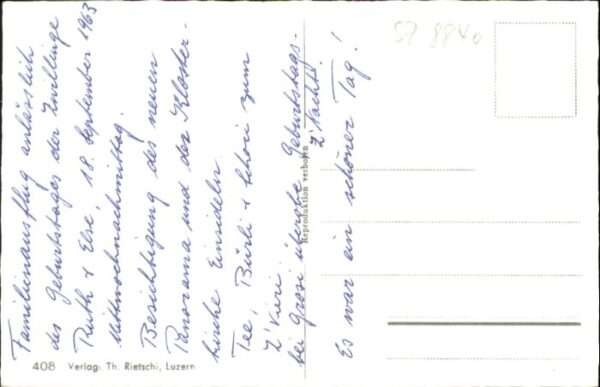 Familienausflug anlässlich
des Geburtstages der Zwillinge
Ruth + Else, 18. September 1963
Mittwochnachmittag.
Besichtigung des neuen
Panorama und der Kloster-
kirche Einsideln
Tee, Bürli + Schöri zum
Z'Vieri.
bei Grosi überobe Geburtstags-
Z'Nacht!
Es war ein schöner Tag!
Reproduktion verboten
408 Verlag: Th. Rietschi, Luzern